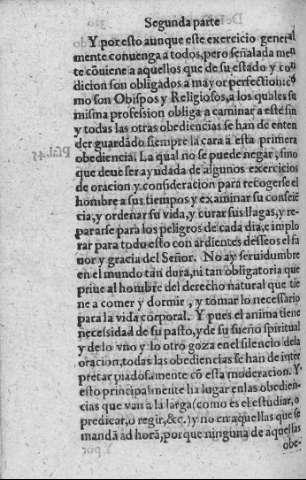 Segunda parte
Y por esto aunque este exercicio general
mente conuenga a todos, pero señalada men
te cõuiene a aquellos que de su estado y con
dicion son obligados a mayor perfection: co
mo son Obispos y Religiosos, a los quales su
misma profession obliga a caminar a este fin
y todas las otras obediencias se han de enten
der guardãdo siempre la cara a esta primera
obediencia. La qual no se puede negar, sino
que deue ser ayudada de algunos exercicios
de oracion y consideracion para recogerse el
hombre a sus tiempos y examinar su conscié
cia, y ordenar su vida, y curar sus llagas, y re-
pararse para los peligros de cada dia, e implo
rar para todo esto con ardientes desseos el fa
uor y gracia del Señor. No ay seruidumbre
en el mundo tan dura, ni tan obligatoria que
priue al hombre del derecho natural que tie
ne a comer y dormir, y tomar lo necessario
para la vida corporal. Y pues el anima tiene
necessidad de su pasto, y de su sueño spiritual
y de lo vno y lo otro goza en el silencio dela
oracion, todas las obediencias se han de inter
pretar piadosamente cõ esta moderacion. Y
esto principalmente ha lugar en las obedien-
cias que van a la larga (como es el estudiar, o
predicar, o regir, &c.) y no en aquellas que se
mandã ad horã, porque ninguna de aquellas
obe-